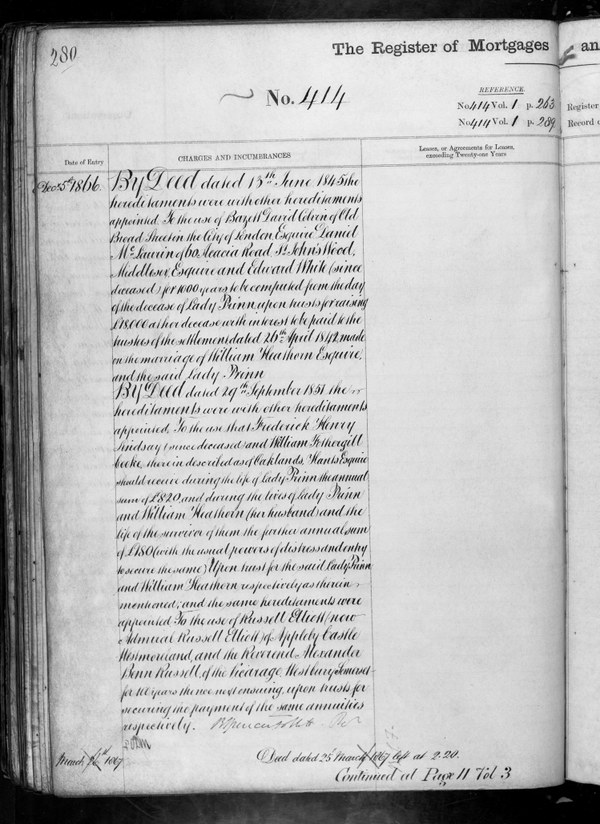 280
The Register of Mortgages an
REFERENCE.
No. 414
No 414 Vol. 1 p. 263
No 414 Vol. 1 p. 289
Register
Record o
Date of Entry
CHARGES AND INCUMBRANCES
Leases, or Agreements for Leases,
exceeding Twenty-one Years
Decr 5th 1866.
By Deed dated 13th June 1845 the
hereditaments were with other hereditaments
appointed To the use of Bazett David Colvin of Old
Broad Street in the City of London Esquire Daniel
McLaurin of 60 Acacia Road, St John's Wood,
Middlesex, Esquire and Edward White (since
deceased) for 1000 years to be computed from the day
of the decease of Lady Prinn, upon trusts for raising
£18,000 at her decease with interest to be paid to the
trustees of the settlement dated 26th April 1842, made
on the marriage of William Heathorn Esquire,
and the said Lady Prinn
By Deed dated 29th September 1851 the
hereditaments were with other hereditaments
appointed, To the use that Frederick Henry
Lindsay (since deceased) and William Fothergill
Cooke, therein described as of Oaklands, Hants Esquire
should receive during the life of Lady Prinn the annual
sum of £820, and during the lives of Lady Prinn
and William Heathorn (her husband) and the
life of the survivor of them the further annual sum
of £180 (with the usual powers of distress and entry
to secure the same) Upon trust for the said Lady Prinn
and William Heathorn respectively as therein
mentioned; and the same hereditaments were
appointed To the use of Russell Elliott (now
Admiral Russell Elliott) of Appleby Castle
Westmoreland, and the Reverend Alexander
Benn Russell, of the Vicarage, Westbury Somerset
for 10 years thence next ensuing, upon trusts for
securing the payment of the same annuities
respectively.
March 1867
Deed dated 25 March 1867 left at 2.20.
Continued at Page 11 Vol 3